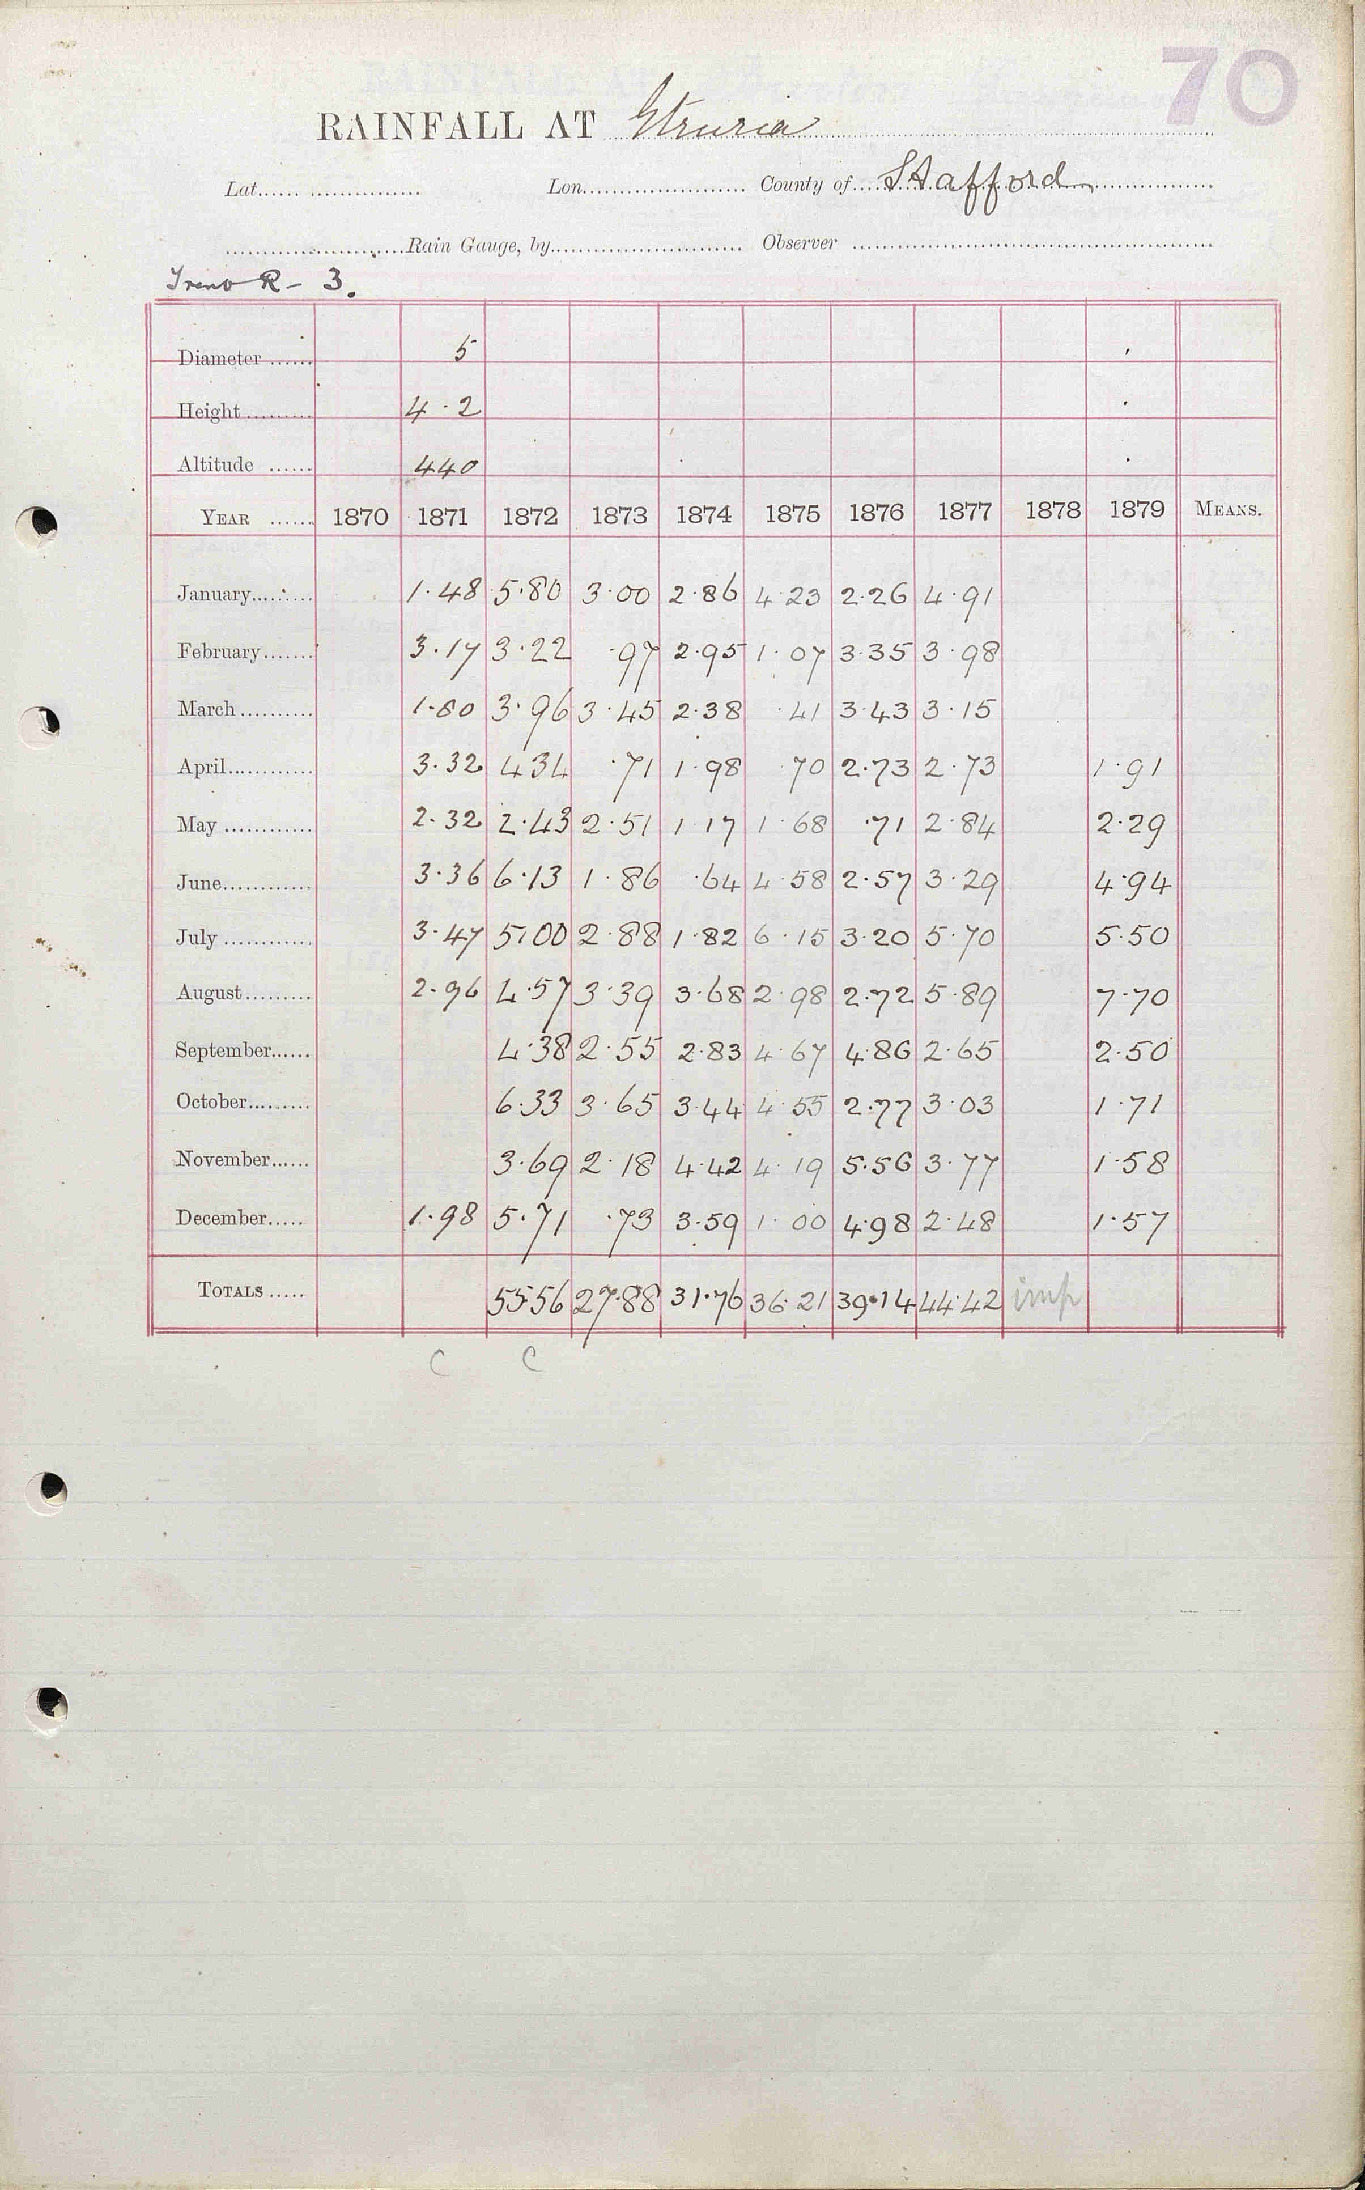 70
RAINFALL AT Etruria
Lat. Lon. County of Stafford
Rain Gauge, by Observer
R - 3.
Diameter 5
Height 4.2
Altitude 440
YEAR 1870 1871 1872 1873 1874 1875 1876 1877 1878 1879 MEANS.
January 1.48 5.80 3.00 2.86 4.23 2.26 4.91
February 3.17 3.22 .97 2.95 1.07 3.35 3.98
March 1.80 3.96 3.45 2.38 .41 3.43 3.15
April 3.32 4.34 .71 1.98 .70 2.73 2.73 1.91
May 2.32 2.43 2.51 1.17 1.68 .71 2.84 2.29
June 3.36 6.13 1.86 .64 4.58 2.57 3.29 4.94
July 3.47 5.00 2.88 1.82 6.15 3.20 5.70 5.50
August 2.96 4.57 3.39 3.68 2.98 2.72 5.89 7.70
September 4.38 2.55 2.83 4.67 4.86 2.65 2.50
October 6.33 3.65 3.44 4.55 2.77 3.03 1.71
November 3.69 2.18 4.42 4.19 5.56 3.77 1.58
December 1.98 5.71 .73 3.59 1.00 4.98 2.48 1.57
TOTALS 55.56 27.88 31.76 36.21 39.14 44.42 imp
C C